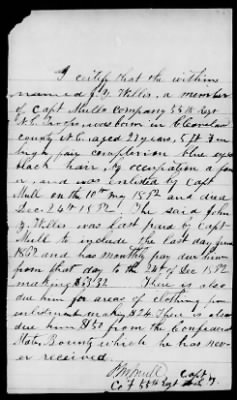 I certify that the within
named J. Y. Willis, a member
of Capt Mulls Company 55th Regt
N.C. Troops, was born in Cleveland
county N.C. aged 23 year, 5 ft 7 in
high fair complexion blue eyes
black hair, by occupation a far
er, and was enlisted by Capt
Mull on the 10th May 1862 and died
Dec. 24th 1862. The said John
Y. Willis was last paid by Capt
Mull to include the last day June
1862 and has monthly pay due him
from that day to the 24th of Dec 1862
making There is also
due him for areas of clothing from
enlistment making $24. There is also
due him $50 from the Confederate
States Bounty which he has nev-
er received
Mull Capt
Co F 55th Regt